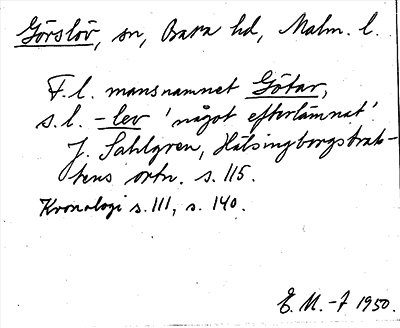 Görslöv, sn, Bara hd, Malm. l.
F.l. mansnamnet Götar,
s.l. -lev 'något efterlämnat'.
J. Sahlgren, Hälsingborgstrak-
tens ortn. s. 115.
Kronologi s. 111, s. 140.
E. M. -7 1950.